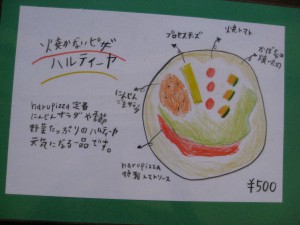 火焼かないピザ
ハルティーヤ
harupizza 定番
にんじんサラダや季節
野菜たっぷりのハルティーヤ
元気になる一品です。
プロセスチーズ
焼トマト
かぼちゃ
にんじん
サラダ
harupizza
特製
ソース
¥500